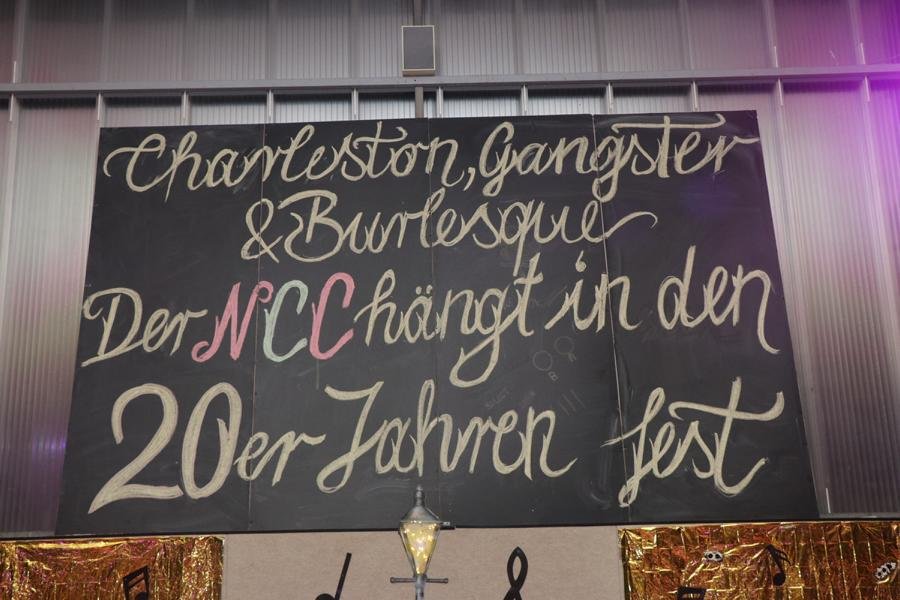 Charleston, Gangster
& Burlesque
Der NCC hängt in den
20er Jahren fest